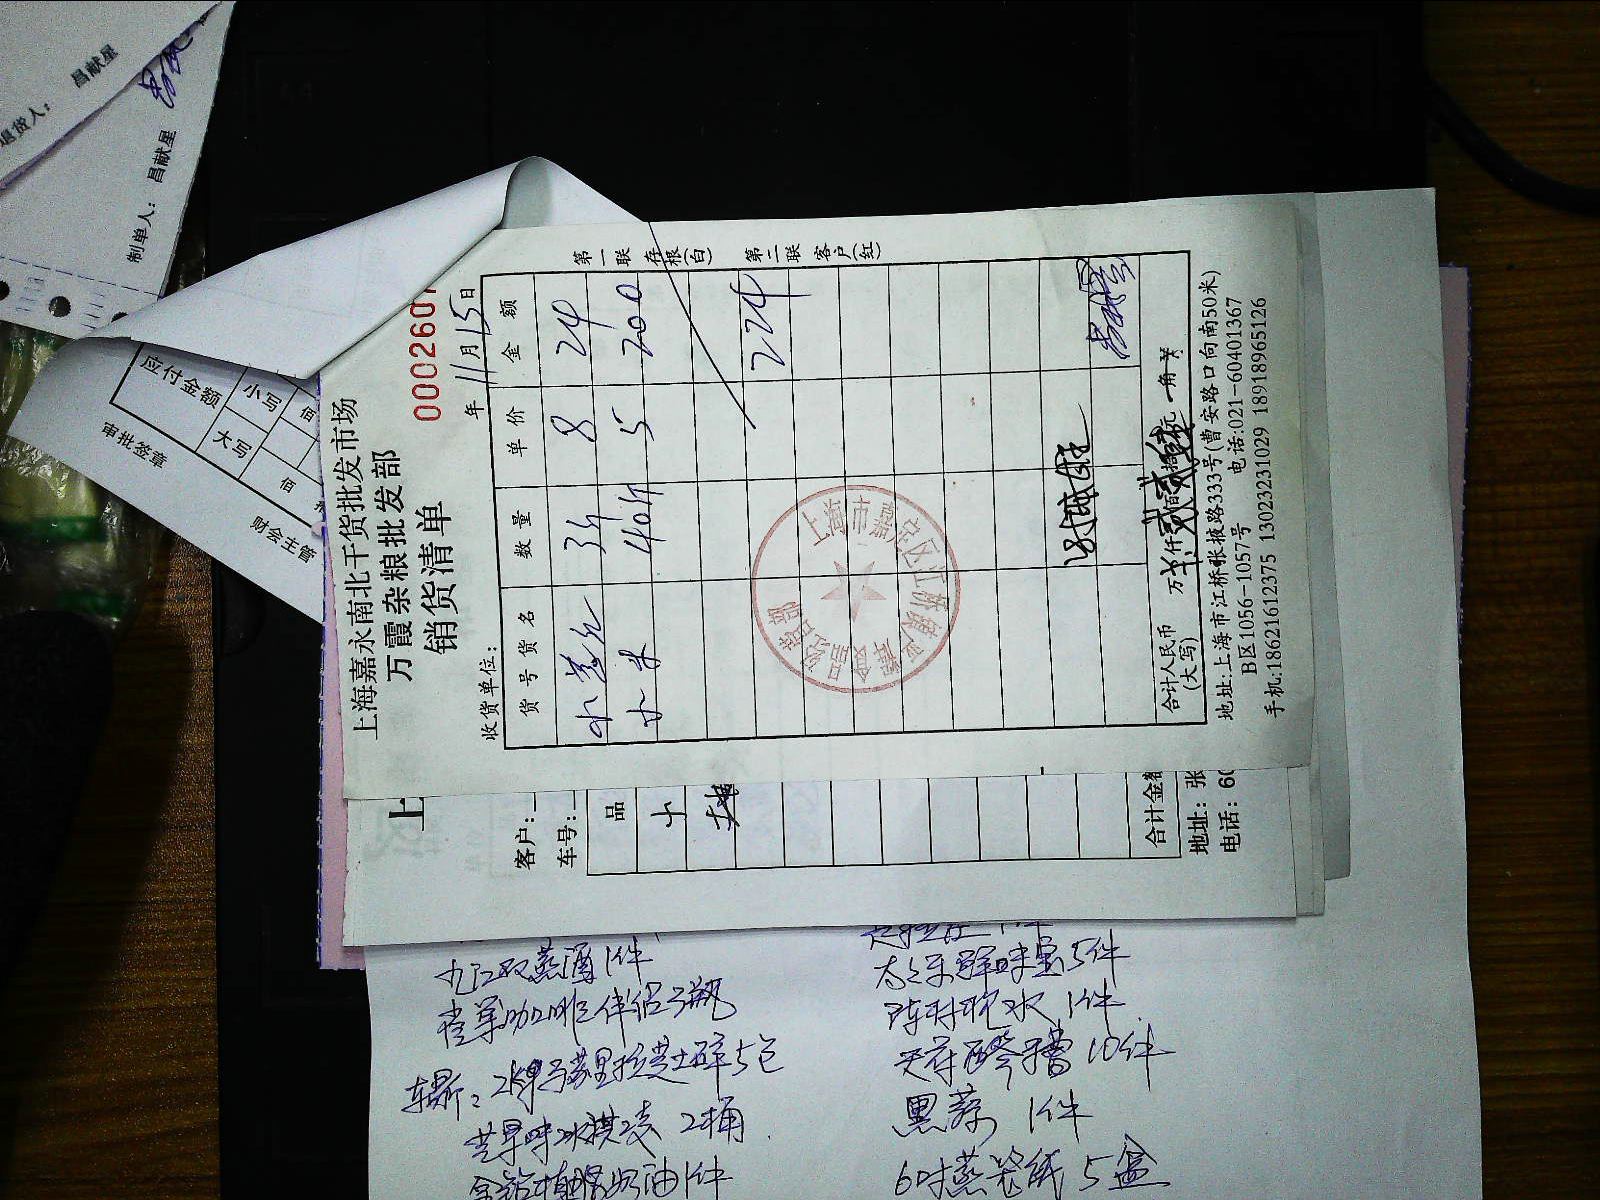 上海嘉永南北干货批发市场
万霞杂粮批发部
销货清单
0002607
收货单位：
年 11月15日
货号货名 数量 单价 金额
8 24
小米 40斤 5 200
224
合计人民币
(大写)
万 仟 佰 拾 元 角
地址:上海市江桥张掖路333号(曹安路口向南50米)
B区1056-1057号 电话:021-60401367
手机:18621612375 13023231029 18918965126
第一联 存根(白) 第二联 客户(红)
上海市嘉定区江桥镇
退货人： 昌献星
制单人： 昌献星
应付金额 小写 佰
大写 佰
审批签章
财会主管
上
客户：
车号：
品
合计金额
地址：张
电话：60
九江双蒸酒1件
雀巢咖啡伴侣3瓶
芝士碎5包
2桶
奶油1件
太太乐鲜味宝5件
陈村枧水 1件
10件
黑蒜 1件
6吋蒸笼纸 5盒